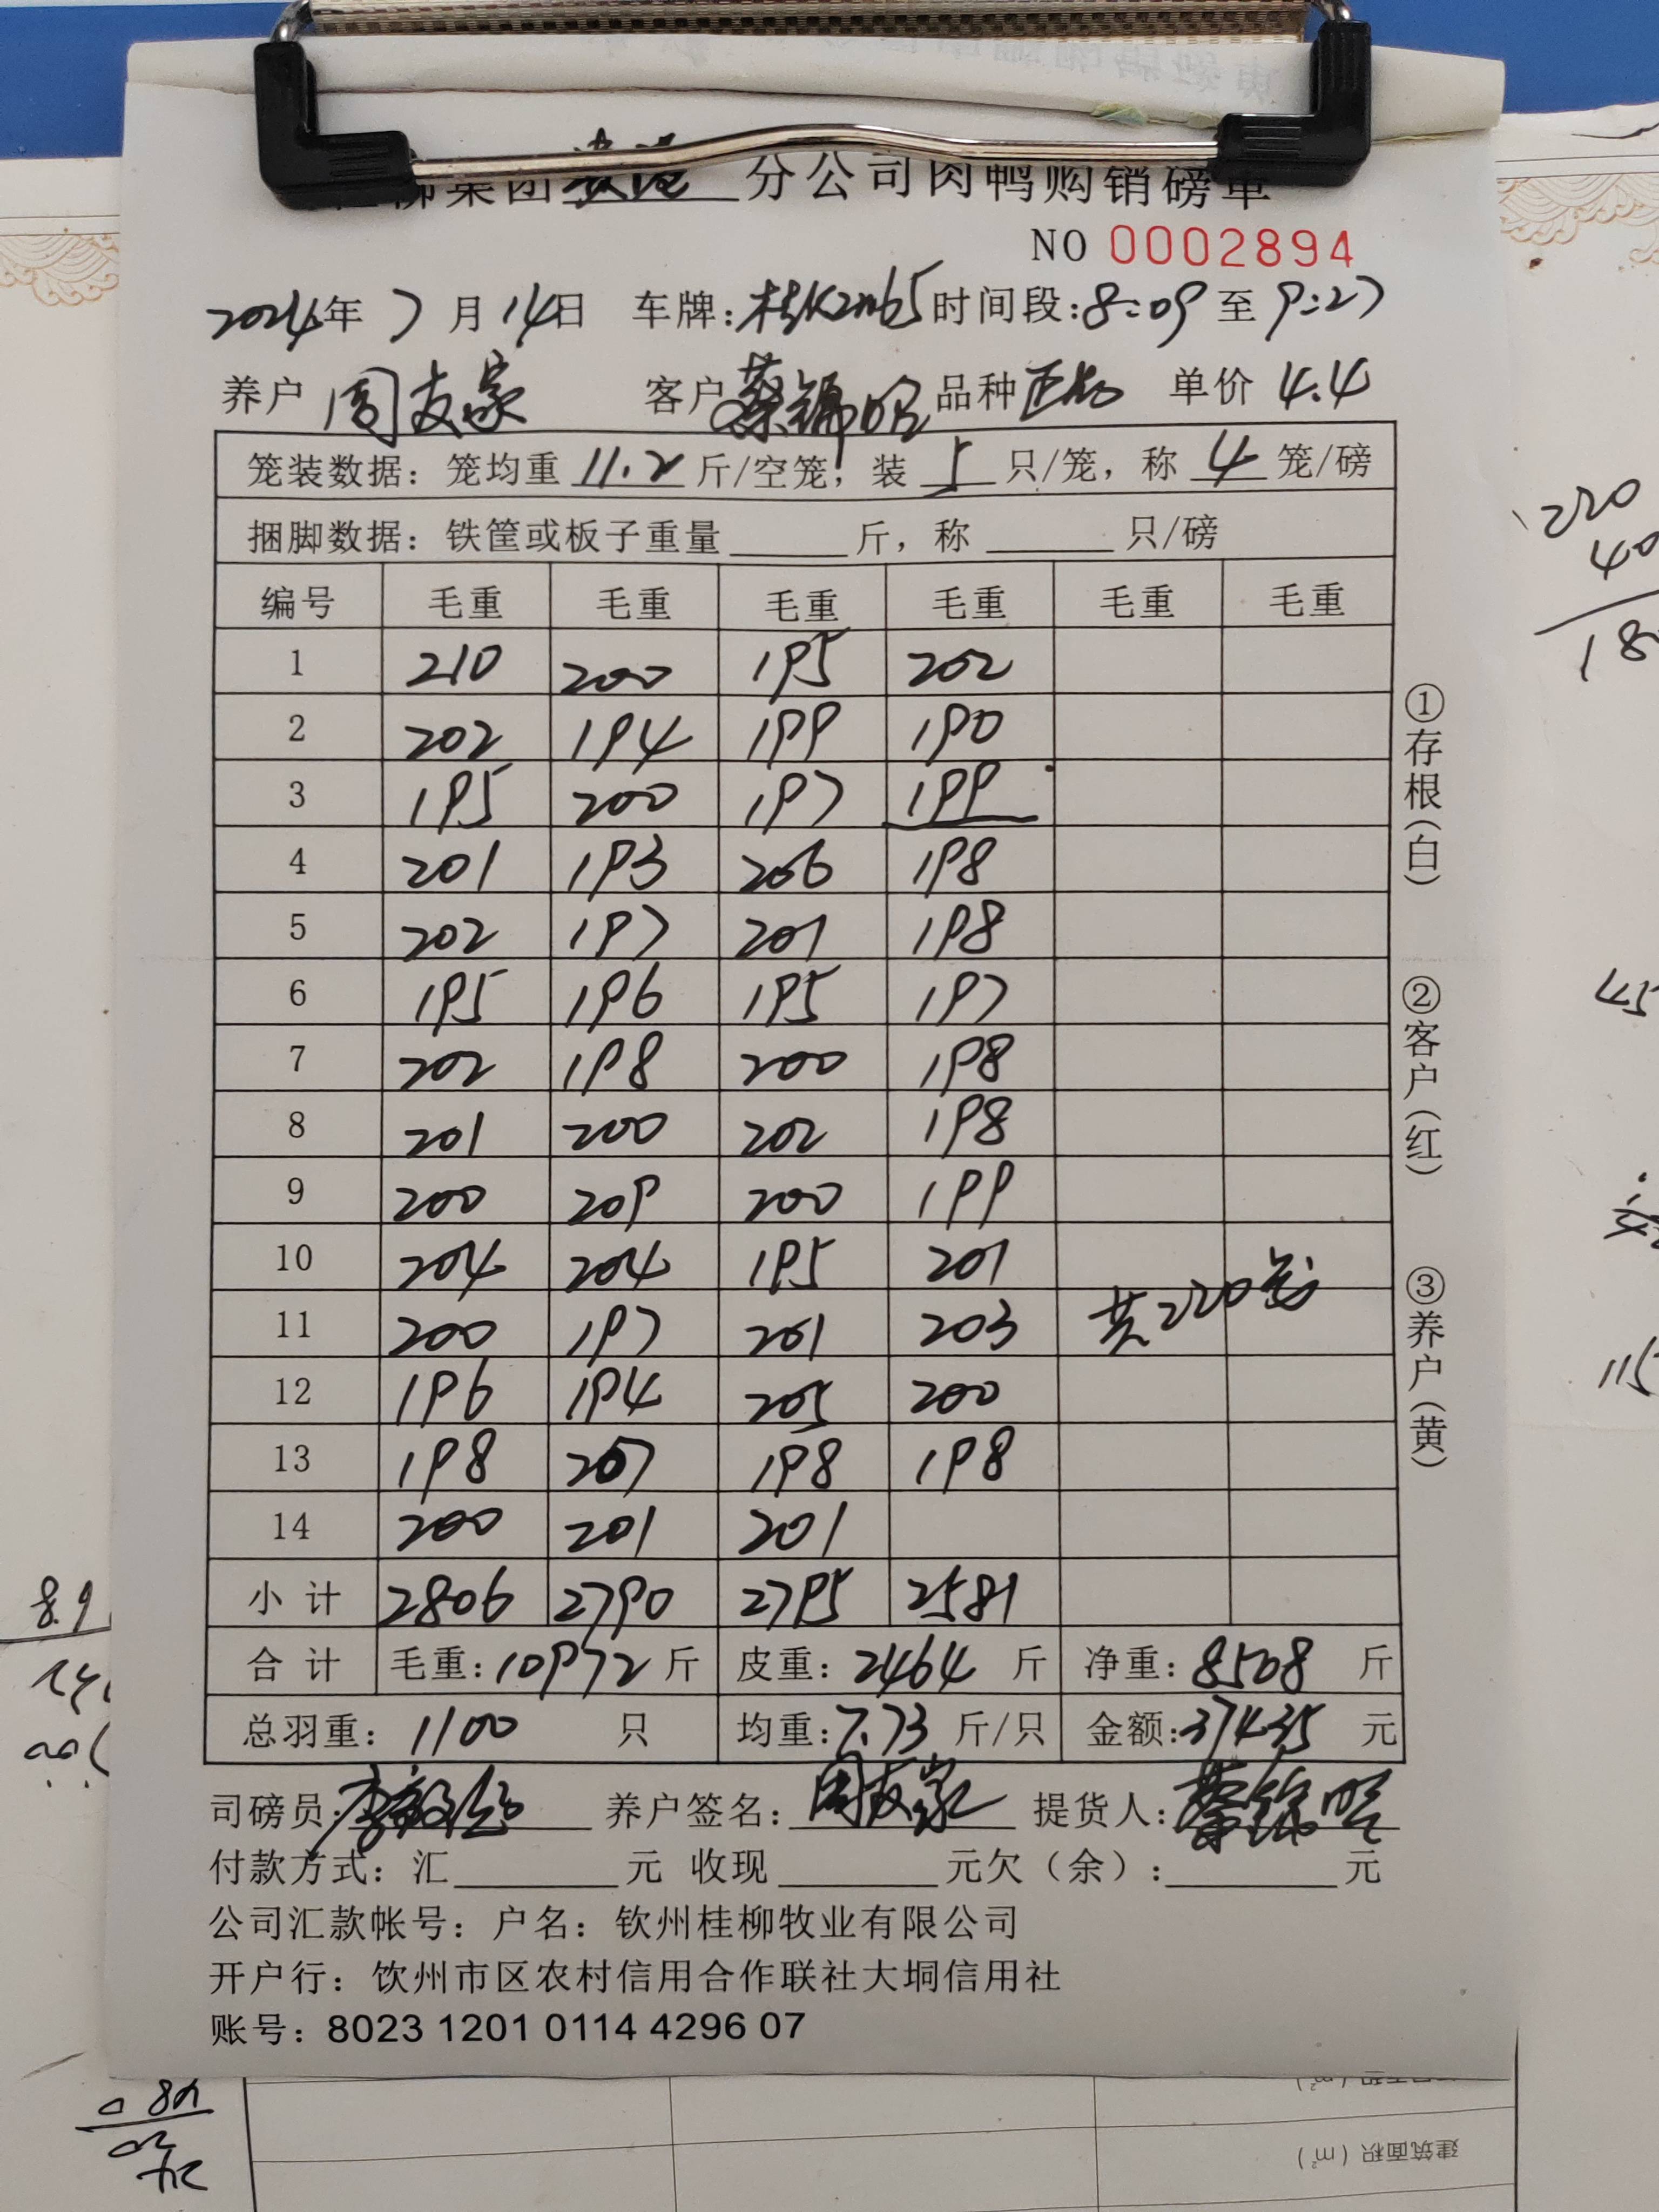 柳集团贵港分公司肉鸭购销磅单
NO 0002894
2024年7月14日 车牌: 时间段:8:09至9:27
养户 周友家 客户 蔡锦昭 品种 单价 4.4
笼装数据：笼均重 11.2 斤/空笼，装 5 只/笼，称 4 笼/磅
捆脚数据：铁筐或板子重量 斤，称 只/磅
编号 毛重 毛重 毛重 毛重 毛重 毛重
1 210 200 195 202
2 202 194 199 190
3 195 200 197 199
4 201 193 206 198
5 202 197 201 198
6 195 196 195 197
7 202 198 200 198
8 201 200 202 198
9 200 209 200 199
10 204 204 195 201
11 200 197 201 203 共220笼
12 196 194 205 200
13 198 207 198 198
14 200 201 201
小计 2806 2790 2795 2581
合计 毛重：10972斤 皮重：2464斤 净重：8508斤
总羽重：1100 只 均重：7.73斤/只 金额：37435元
司磅员： 养户签名：周友家 提货人：蔡锦昭
付款方式：汇 元 收现 元欠（余）： 元
公司汇款帐号：户名：钦州桂柳牧业有限公司
开户行：饮州市区农村信用合作联社大垌信用社
账号：8023 1201 0114 4296 07
①存根（白）
②客户（红）
③养户（黄）
220
40
18
45
115
8.9
建筑面积（m²）